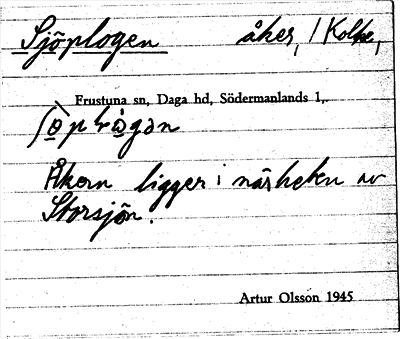 Sjöplogen åker, 1 Kolbo,
Frustuna sn, Daga hd, Södermanlands l,.
Åkern ligger i närheten av
Storsjön.
Artur Olsson 1945